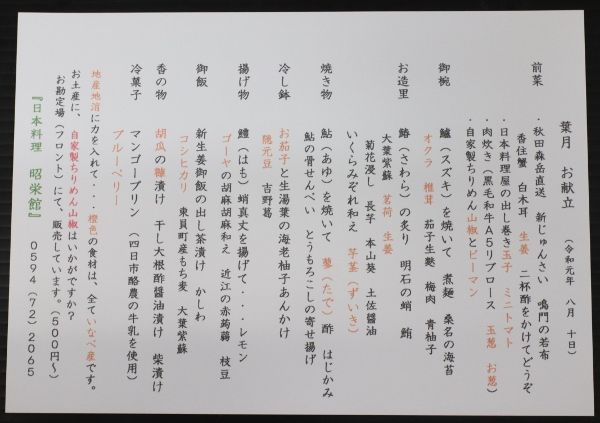 葉月　お献立　（令和元年　八月　十日）
前菜　・秋田森岳直送　新じゅんさい　鳴門の若布
香住蟹　白木耳　生姜　二杯酢をかけてどうぞ
・日本料理屋の出し巻き玉子　ミニトマト
・肉炊き（黒毛和牛A5リブロース　玉葱　お葱）
・自家製ちりめん山椒とピーマン
御椀　鱸（スズキ）を焼いて　煮麺　桑名の海苔
オクラ　椎茸　茄子生麩　梅肉　青柚子
お造里　鰆（さわら）の炙り　明石の蛸　鮪
大葉紫蘇　茗荷　生姜
菊花浸し　長芋　本山葵　土佐醤油
いくらみぞれ和え　芋茎（ずいき）
焼き物　鮎（あゆ）を焼いて　蓼（たで）酢　はじかみ
鮎の骨せんべい　とうもろこしの寄せ揚げ
冷し鉢　お茄子と生湯葉の海老柚子あんかけ
隠元豆　吉野葛
揚げ物　鱧（はも）蛸真丈を揚げて・・・レモン
ゴーヤの胡麻胡麻和え　近江の赤蒟蒻　枝豆
御飯　新生姜御飯の出し茶漬け　かしわ
コシヒカリ　東員町産もち麦　大葉紫蘇
香の物　胡瓜の糠漬け　干し大根酢醤油漬け　柴漬け
冷菓子　マンゴープリン　（四日市酪農の牛乳を使用）
ブルーベリー
地産地消に力を入れて・・・橙色の食材は、全ていなべ産です。
お土産に、自家製ちりめん山椒はいかがですか？
お勘定場（フロント）にて、販売しています。（500円～）
『日本料理　昭栄館』　0594（72）2065